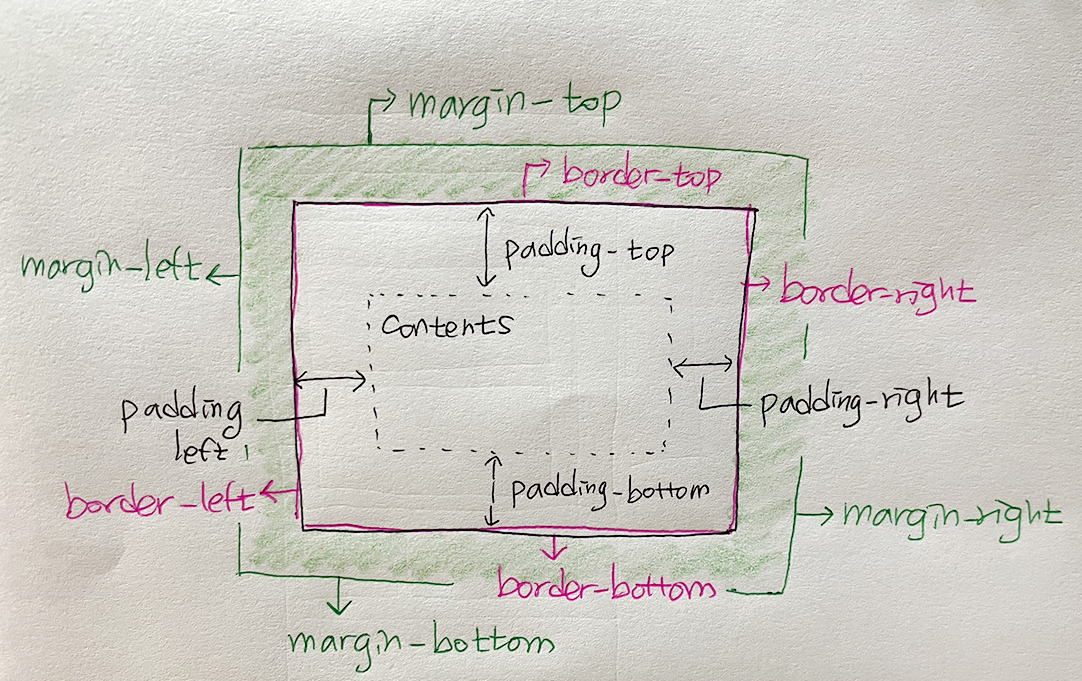 margin-top
border-top
padding-top
margin-left
border-right
contents
padding
left
padding-right
border-left
padding-bottom
margin-right
border-bottom
margin-bottom